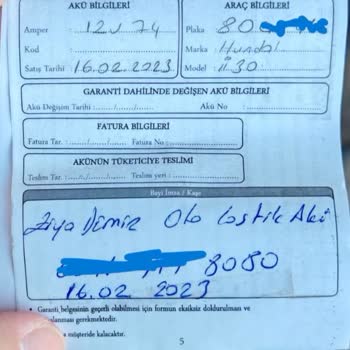 AKÜ BİLGİLERİ
Amper : 12V 74
Kod :
Satış Tarihi : 16.02.2023
ARAÇ BİLGİLERİ
Plaka : 80
Marka : Hundai
Model : İ30
GARANTİ DAHİLİNDE DEĞİŞEN AKÜ BİLGİLERİ
Akü Değişim Tarihi : ....../....../...... Akü No :
FATURA BİLGİLERİ
Fatura Tar. : ....../....../...... Fatura No :
AKÜNÜN TÜKETİCİYE TESLİMİ
Teslim Tar. : ....../....../...... Teslim yeri :
Bayi İmza / Kaşe
Ziya Demir Oto Lastik Akü
8080
16.02 2023
• Garanti belgesinin geçerli olabilmesi için formun eksiksiz doldurulması ve
gerekmektedir.
müşteride kalacaktır.
5